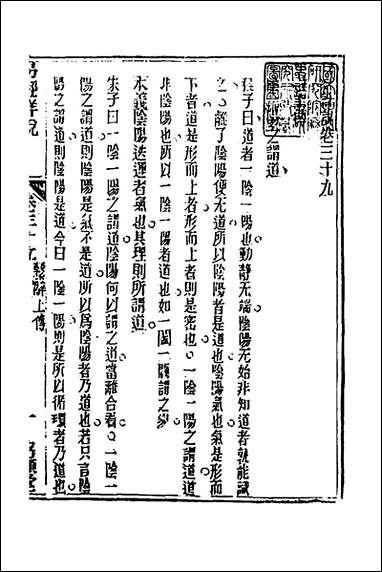 卷三十九
之謂道
程子曰道者一陰一陽也動靜无端陰陽无始非知道者孰能識
之○離了陰陽便无道所以陰陽者是道也陰陽氣也氣是形而
下者道是形而上者形而上者則是密也○一陰一陽之謂道道
非陰陽也所以一陰一陽者道也如一闔一闢謂之變
本義陰陽迭運者氣也其理則所謂道
朱子曰一陰一陽之謂道陰陽何以謂之道當離合看○一陰一
陽之謂道陰陽是氣不是道所以爲陰陽者乃道也若只言陰
陽之謂道則陰陽是道今曰一陰一陽則是所以循環者乃道也
易經詳說
卷三十九 繫辭上傳
一